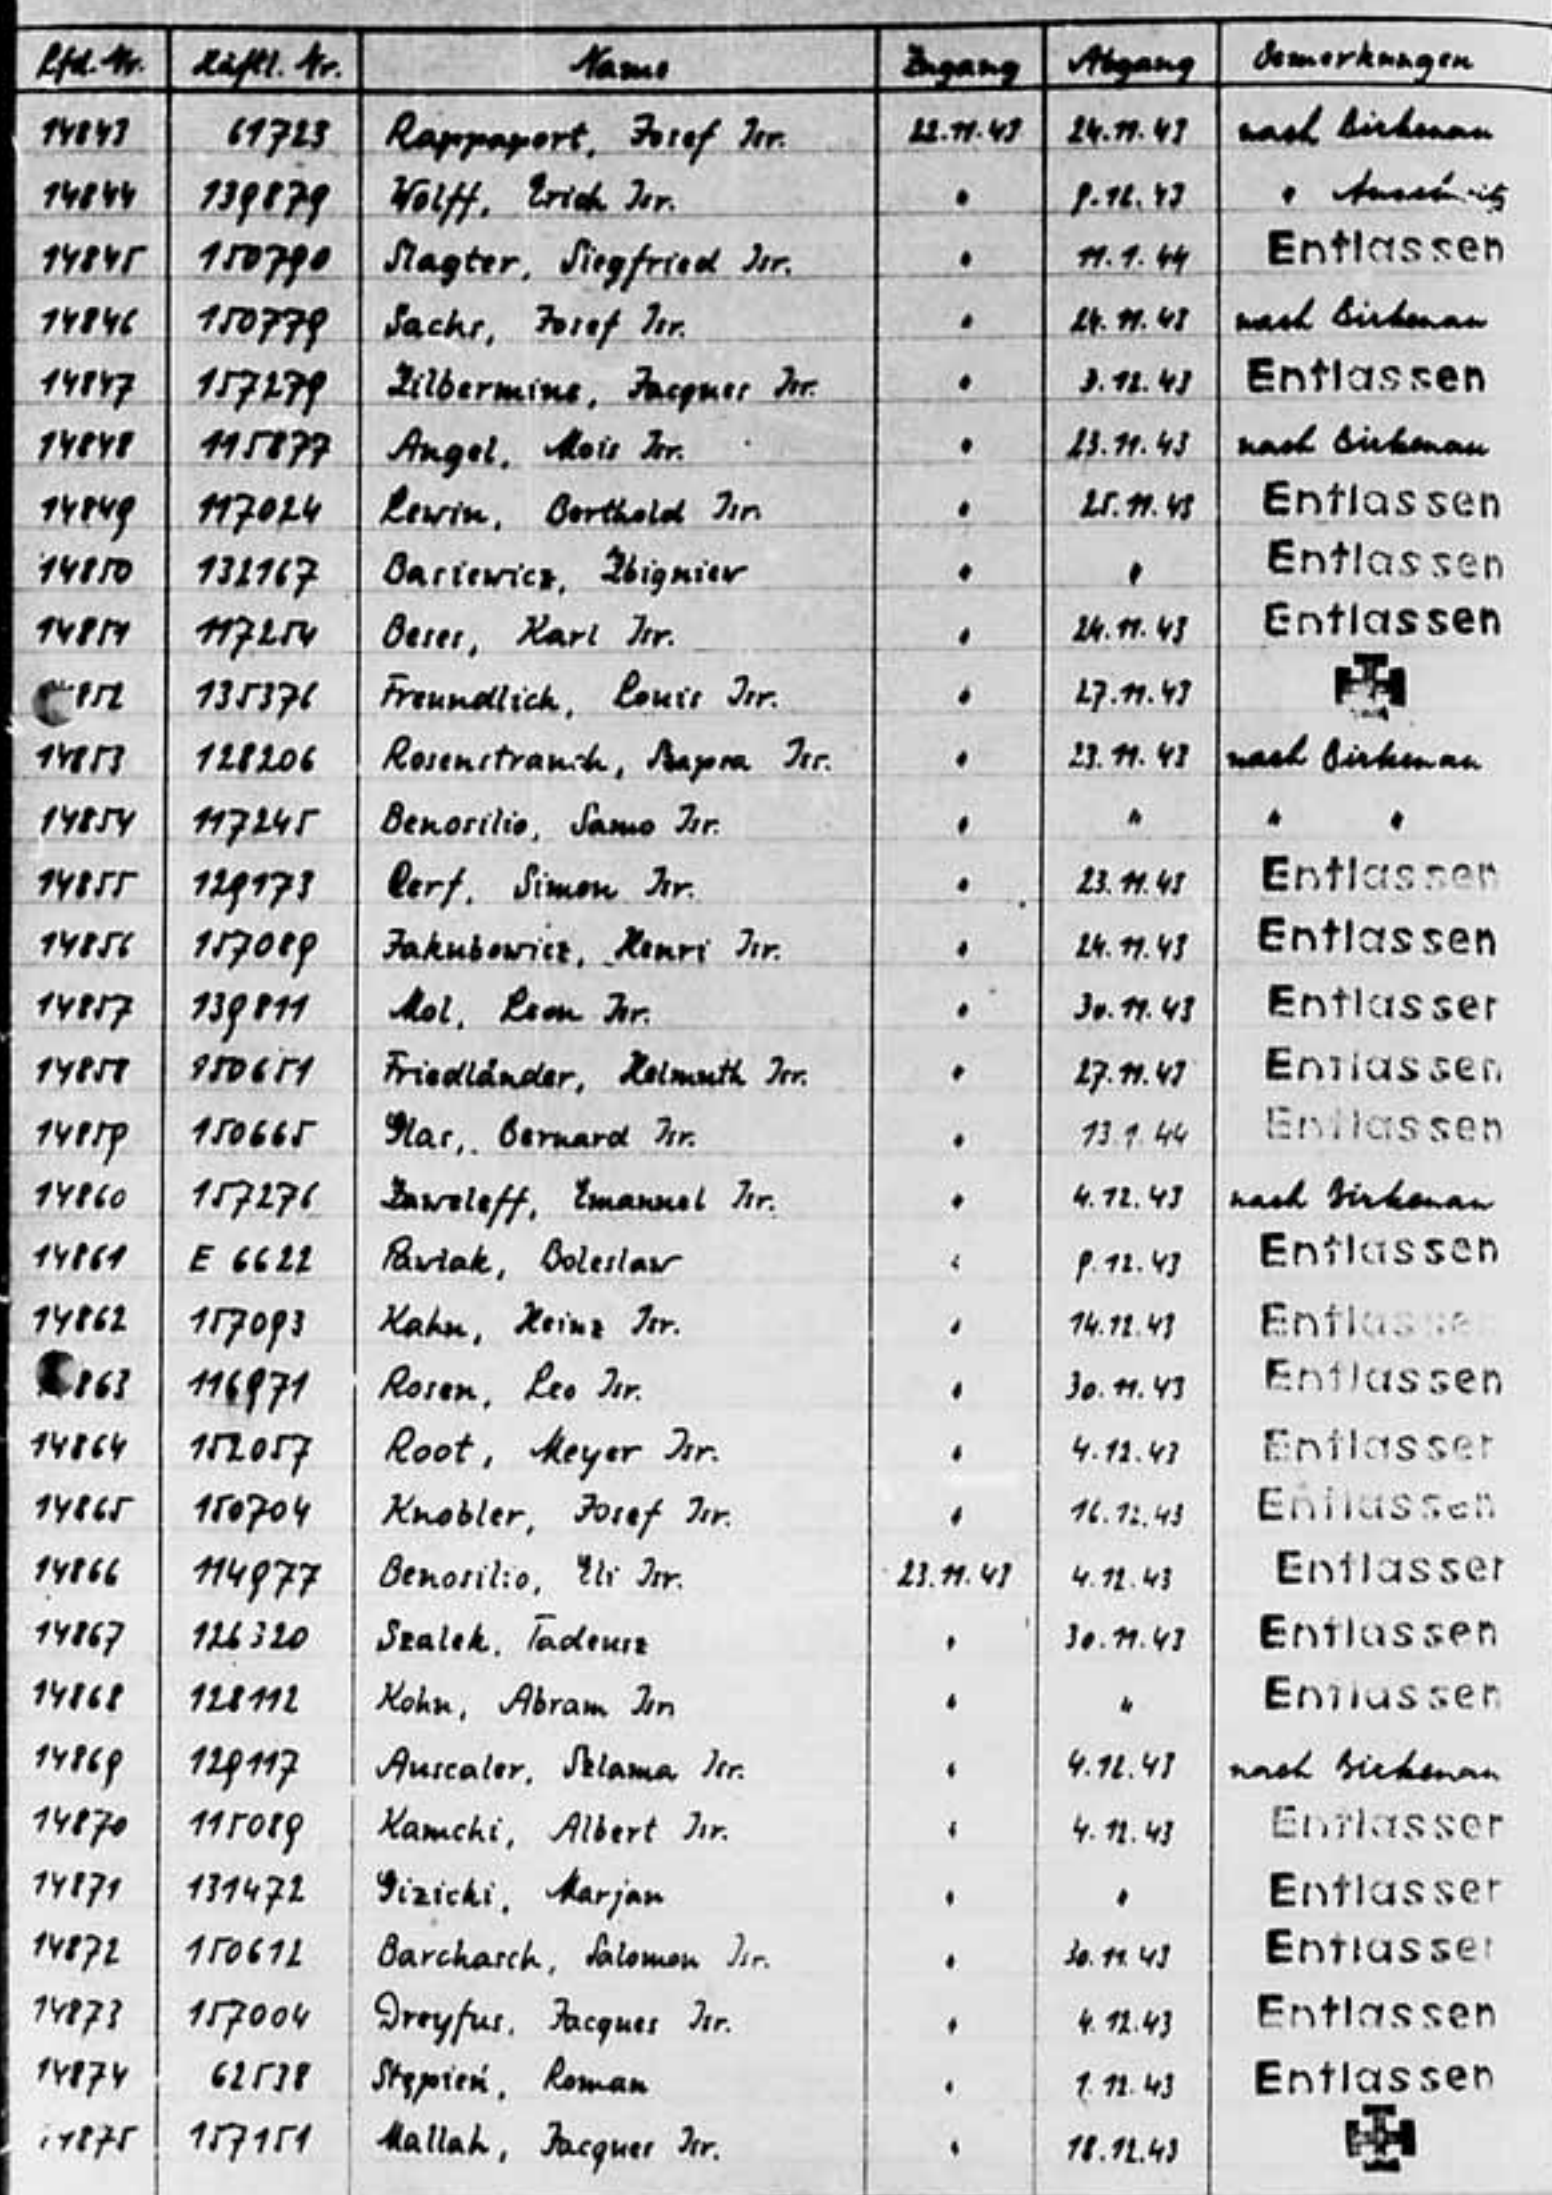 Lfd. Nr. Häftl. Nr. Name Zugang Abgang Bemerkungen
14843 61723 Rappaport, Josef Isr. 22.11.43 24.11.43 nach Birkenau
14844 139879 Wolff, Erich Isr. " 9.12.43 " Auschwitz
14845 150790 Slagter, Siegfried Isr. " 11.1.44 Entlassen
14846 150779 Sachs, Josef Isr. " 24.11.43 nach Birkenau
14847 157279 Zilbermine, Jacques Isr. " 3.12.43 Entlassen
14848 115877 Angel, Mois Isr. " 23.11.43 nach Birkenau
14849 117024 Lewin, Berthold Isr. " 25.11.43 Entlassen
14850 132167 Basiewicz, Zbigniew " " Entlassen
14851 117254 Beses, Karl Isr. " 24.11.43 Entlassen
852 135376 Freundlich, Louis Isr. " 27.11.43
14853 128206 Rosenstrauch, Szapsa Isr. " 23.11.43 nach Birkenau
14854 117245 Benosilio, Samo Isr. " " " "
14855 129173 Cerf, Simon Isr. " 23.11.43 Entlassen
14856 157089 Jakubowicz, Henri Isr. " 24.11.43 Entlassen
14857 139811 Mol, Leon Isr. " 30.11.43 Entlassen
14858 150651 Friedländer, Helmuth Isr. " 27.11.43 Entlassen
14859 150665 Glas, Bernard Isr. " 13.1.44 Entlassen
14860 157276 Zaweleff, Emanuel Isr. " 4.12.43 nach Birkenau
14861 E 6622 Pawlak, Boleslaw " 9.12.43 Entlassen
14862 157093 Kahn, Heinz Isr. " 14.12.43 Entlassen
863 116971 Rosen, Leo Isr. " 30.11.43 Entlassen
14864 152057 Root, Meyer Isr. " 4.12.43 Entlassen
14865 150704 Knobler, Josef Isr. " 16.12.43 Entlassen
14866 114977 Benosilio, Eli Isr. 23.11.43 4.12.43 Entlassen
14867 126320 Szalek, Tadeusz " 30.11.43 Entlassen
14868 128112 Kohn, Abram Isr. " " Entlassen
14869 129117 Auscaler, Szlama Isr. " 4.12.43 nach Birkenau
14870 115089 Kamchi, Albert Isr. " 4.12.43 Entlassen
14871 131472 Gizicki, Marjan " " Entlassen
14872 150612 Barchasch, Salomon Isr. " 30.11.43 Entlassen
14873 157004 Dreyfus, Jacques Isr. " 4.12.43 Entlassen
14874 62538 Stępień, Roman " 1.12.43 Entlassen
14875 157151 Mallah, Jacques Isr. " 18.12.43